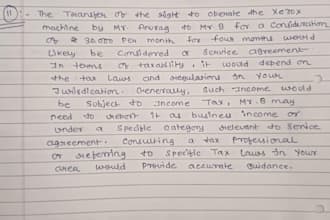 11 - The Transfer of the right to oberate the Xerox
machine by Mr Anurag to Mr B for a Consideration
of ₹ 30,000 Per month for four months would
Likely be Considered a service agreement
In terms of taxability, it would depend on
the tax Laws and regulations in Your
Jurisdication. Generally, Such Income would
be Subject to Income Tax, Mr. B may
need to report it as business income or
under a Specific Category relevent to Service
agreement. Consulting a tax Professional
or referring to Specific Tax Laws in Your
area would Provide accurate Guidance.